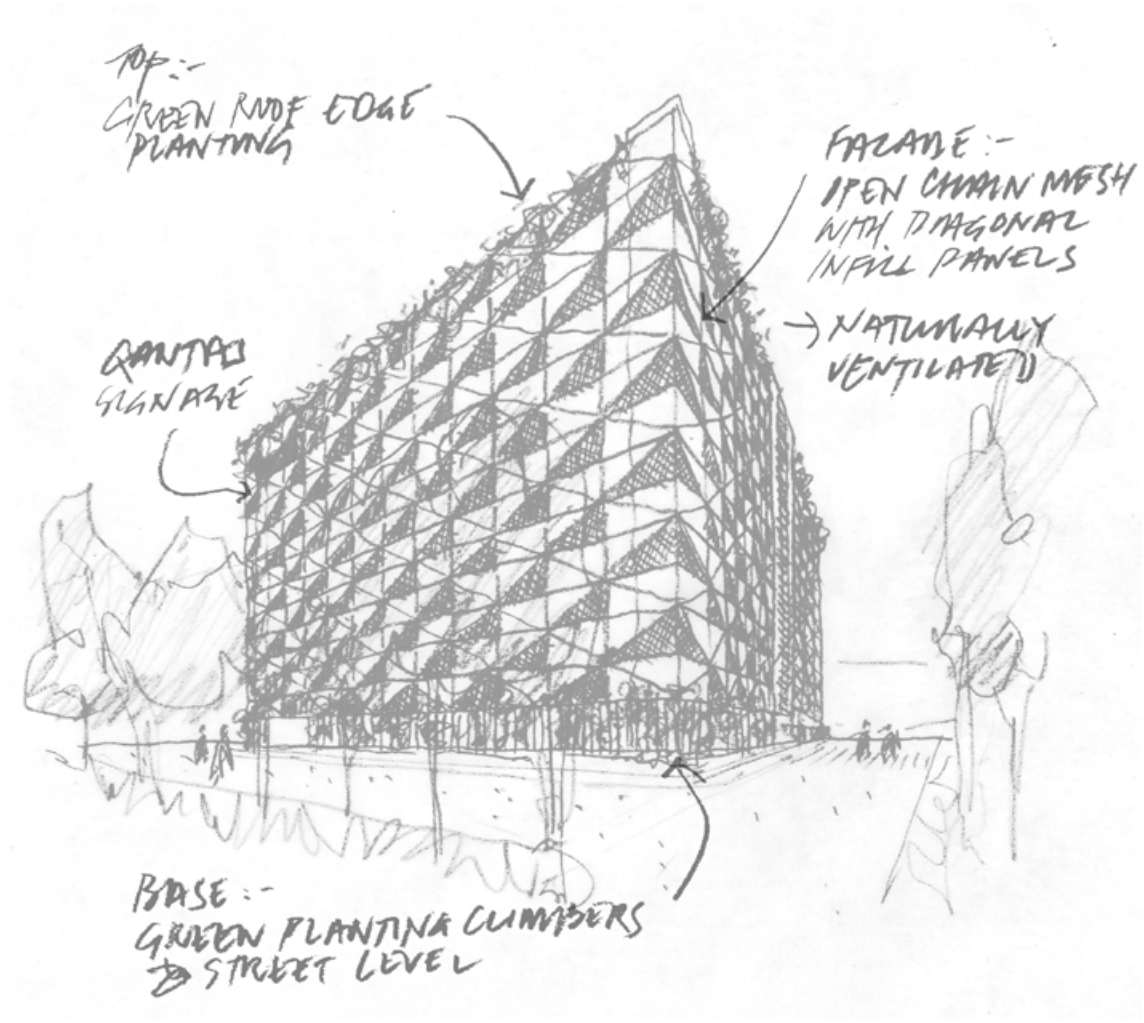 TOP:-
GREEN ROOF EDGE
PLANTING
FACADE:-
OPEN CHAIN MESH
WITH DIAGONAL
INFILL PANELS
→ NATURALLY
VENTILATED
QANTAS
SIGNAGE
BASE:-
GREEN PLANTING CLIMBERS
→ STREET LEVEL